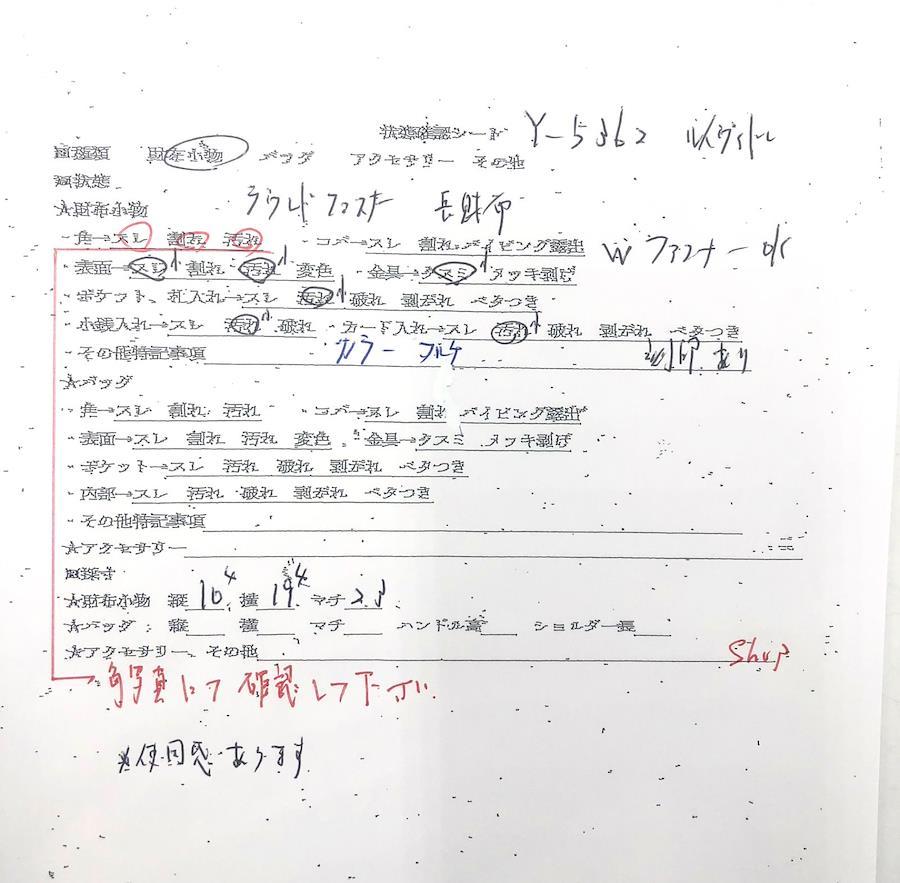 状態確認シート Y-5362 ルイヴィトン
■種類 財布小物 バッグ アクセサリー その他
■状態
★財布小物 ラウンドファスナー 長財布
・角→スレ 割れ 汚れ ・コバ→スレ 割れ パイピング露出 Wファスナー
・表面→スレ小 割れ 汚れ小 変色 ・金具→クスミ小 メッキ剥げ
・ポケット、札入れ→スレ 汚れ小 破れ 剥がれ ベタつき
・小銭入れ→スレ 汚れ小 破れ ・カード入れ→スレ 汚れ小 破れ 剥がれ ベタつき
・その他特記事項 カラー 刻印 あり
★バッグ
・角→スレ 割れ 汚れ ・コバ→スレ 割れ パイピング露出
・表面→スレ 割れ 汚れ 変色 ・金具→クスミ メッキ剥げ
・ポケット→スレ 汚れ 破れ 剥がれ ベタつき
・内部→スレ 汚れ 破れ 剥がれ ベタつき
・その他特記事項
★アクセサリー
■採寸
★財布小物 縦 10.4 横 19.4 マチ 2.3
★バッグ: 縦 横 マチ ハンドル高 ショルダー長
★アクセサリー、その他 Shop
角写真にて確認して下さい
※使用感あります